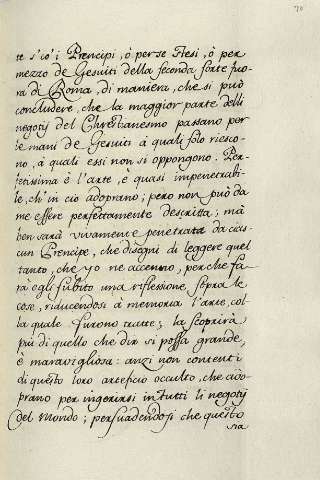 70
te s'ò i Prencipi, ò per se stesi, ò per
mezzo de Gesuiti della seconda sorte fuo-
ra di Roma, di maniera, che si può
concludere, che la maggior parte delli
negotij del Chrestianesmo passano per
le mani de Gesuiti à quali solo riesco-
no, à quali essi non si oppongono. Per-
fetissima è l'arte, è quasi impenetrabi-
le, ch'in ciò adoprano; pero non può da
me essere perfettamente descritta; mà
ben sarà vivamente penetrata da cias-
cun Prencipe, che disegni di leggere quel
tanto, che yo ne accenno, perche fa-
rà egli subito una riflessione sopra le
cose, riducendosi à memoria l'arte, col
la quale furono tratte; la scoprirà
più di quello che dir si possa grande,
è maravigliosa: anzi non contenti
di questo loro arteficio occulto, che ado-
prano per ingerirsi in tutti li negotij
del Mondo; persuadendosi che questo
sia